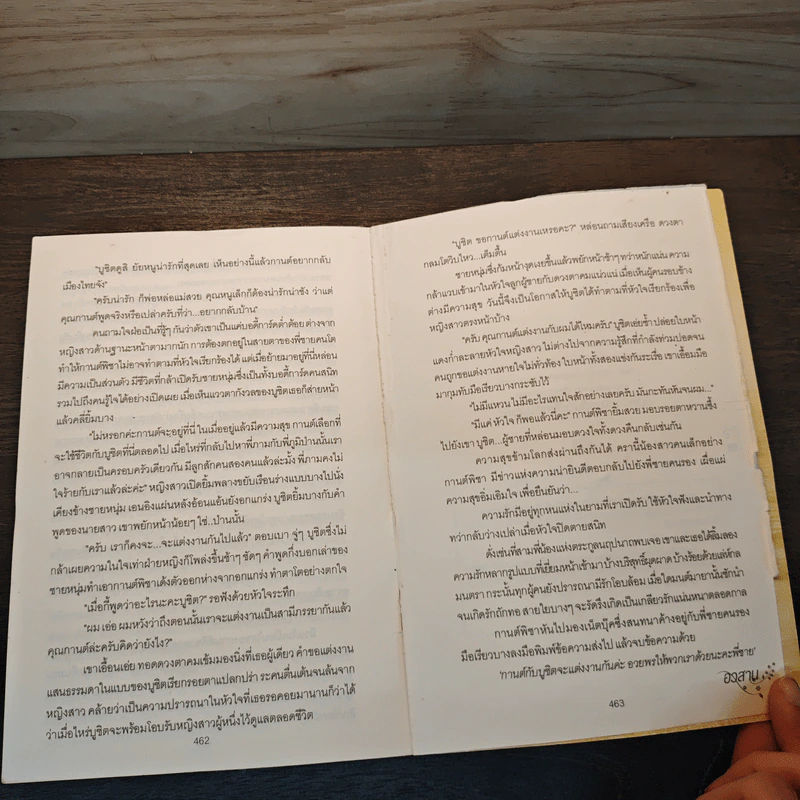 "บูชิตดูสิ ยัยหนูน่ารักที่สุดเลย เห็นอย่างนี้แล้วกานต์อยากกลับ
เมืองไทยจัง"
"ครับน่ารัก ก็พ่อหล่อแม่สวย คุณหนูเล็กก็ต้องน่ารักน่าชัง ว่าแต่
คุณกานต์พูดจริงหรือเปล่าครับที่ว่า...อยากกลับบ้าน"
คนถามใจฝ่อเป็นที่รู้ๆ กันว่าตัวเขาเป็นแค่บอดี้การ์ดต่ำต้อย ต่างจาก
หญิงสาวด้านฐานะหน้าตามากนัก การต้องตกอยู่ในสายตาของพี่ชายคนโต
ทำให้กานต์พิชาไม่อาจทำตามที่หัวใจเรียกร้องได้ แต่เมื่อย้ายมาอยู่ที่นี่หล่อน
มีความเป็นส่วนตัว มีชีวิตที่กล้าเปิดรับชายหนุ่มซึ่งเป็นทั้งบอดี้การ์ดคนสนิท
รวมไปถึงคนรู้ใจได้อย่างเปิดเผย เมื่อเห็นแววตากังวลของบูชิตเธอก็ส่ายหน้า
แล้วคลี่ยิ้มบาง
"ไม่หรอกค่ะกานต์จะอยู่ที่นี่ ในเมื่ออยู่แล้วมีความสุข กานต์เลือกที่
จะใช้ชีวิตกับบูชิตที่นี่ตลอดไป เมื่อไหร่ที่กลับไปหาพี่ภามกับพี่ภูมิป่านนั้นเรา
อาจกลายเป็นครอบครัวเดียวกัน มีลูกสักคนสองคนแล้วล่ะมั้ง พี่ภามคงไม่
ใจร้ายกับเราแล้วล่ะค่ะ" หญิงสาวเปิดยิ้มพลางขยับเรือนร่างแบบบางไปนั่ง
เคียงข้างชายหนุ่ม เอนอิงแผ่นหลังอ้อนแอ้นยังอกแกร่ง บูชิตยิ้มบางกับคำ
พูดของนายสาว เขาพยักหน้าน้อยๆ ใช่...ป่านนั้น
"ครับ เราก็คงจะ...จะแต่งงานกันไปแล้ว" ตอบเบา จู่ๆ บูชิตซึ่งไม่
กล้าเผยความในใจเท่าฝ่ายหญิงก็โพล่งขึ้นช้าๆ ชัดๆ คำพูดกึ่งบอกเล่าของ
ชายหนุ่มทำเอากานต์พิชาเด้งตัวออกห่างจากอกแกร่ง ทำตาโตอย่างตกใจ
"เมื่อกี้พูดว่าอะไรนะคะบูชิต?" รอฟังด้วยหัวใจระทึก
"ผม เอ่อ ผมหวังว่าถึงตอนนั้นเราจะแต่งงานเป็นสามีภรรยากันแล้ว
คุณกานต์ล่ะครับคิดว่ายังไง?"
เขาเอื้อนเอ่ย ทอดดวงตาคมเข้มมองนิ่งที่เธอผู้เดียว คำขอแต่งงาน
แสนธรรมดาในแบบของบูชิตเรียกรอยตาแปลกปร่า ระคนตื่นเต้นจนล้นจาก
หญิงสาว คล้ายว่าเป็นความปรารถนาในหัวใจที่เธอรอคอยมานานก็ว่าได้
ว่าเมื่อไหร่บูชิตจะพร้อมโอบรับหญิงสาวผู้หนึ่งไว้ดูแลตลอดชีวิต
462
"บูชิต ขอกานต์แต่งงานเหรอคะ?" หล่อนถามเสียงเครือ ดวงตา
กลมโตวิบไหว...เต็มตื้น
ชายหนุ่มซึ่งก้มหน้างุดเงยขึ้นแล้วพยักหน้าช้าๆ ทว่าหนักแน่น ความ
กล้าแวบเข้ามาในหัวใจลูกผู้ชายกับดวงตาคมแน่วแน่ เมื่อเห็นผู้คนรอบข้าง
ต่างมีความสุข วันนี้จึงเป็นโอกาสให้บูชิตได้ทำตามที่หัวใจเรียกร้องเพื่อ
หญิงสาวตรงหน้าบ้าง
"ครับ คุณกานต์แต่งงานกับผมได้ไหมครับ" บูชิตเอ่ยซ้ำ ปล่อยใบหน้า
แดงก่ำละลายหัวใจหญิงสาว ไม่ต่างไปจากความรู้สึกที่กำลังท่วมปอดจน
คนถูกขอแต่งงานหายใจไม่ทั่วท้อง ใบหน้าทั้งสองแข่งกันระเรื่อ เขาเอื้อมมือ
มากุมทับมือเรียวบางกระชับไว้
"ไม่มีแหวน ไม่มีอะไรแทนใจสักอย่างเลยครับ มันกะทันหันจนผม..."
"มีแค่ หัวใจ ก็พอแล้วนี่คะ" กานต์พิชายิ้มสวย มอบรอยตาหวานซึ้ง
ไปยังเขา บูชิต...ผู้ชายที่หล่อนมอบดวงใจทั้งดวงคืนกลับเช่นกัน
ความสุขข้ามโลกส่งผ่านถึงกันได้ ครานี้น้องสาวคนเล็กอย่าง
กานต์พิชา มีข่าวแห่งความน่ายินดีตอบกลับไปยังพี่ชายคนรอง เผื่อแผ่
ความสุขอิ่มเอิมใจ เพื่อยืนยันว่า...
ความรักมีอยู่ทุกหนแห่งในยามที่เราเปิดรับ ใช้หัวใจฟังและนำทาง
ทว่ากลับว่างเปล่าเมื่อหัวใจปิดตายสนิท
ดั่งเช่นที่สามพี่น้องแห่งตระกูลกฤปนาถพบเจอ เขาและเธอได้ลิ้มลอง
ความรักหลากรูปแบบที่เยี่ยมหน้าเข้ามา บ้างบริสุทธิ์ผุดผาด บ้างร้อยด้วยเล่ห์กล
มนตรา กระนั้นทุกผู้คนยังปรารถนามีรักโอบล้อม เมื่อใดมนต์มายานั้นชักนำ
จนเกิดรักถักทอ สายใยบางๆ จะรัดรึงเกิดเป็นเกลียวรักแน่นหนาตลอดกาล
กานต์พิชาหันไปมองเน็ตบุ๊คซึ่งสนทนาค้างอยู่กับพี่ชายคนรอง
มือเรียวบางลงมือพิมพ์ข้อความส่งไป แล้วจบข้อความด้วย
'กานต์กับบูชิตจะแต่งงานกันค่ะ อวยพรให้พวกเราด้วยนะคะพี่ชาย'
อวสาน
463